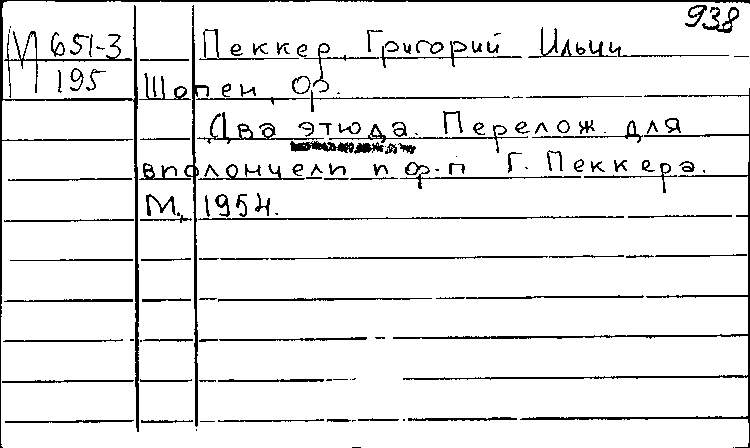 938
М 651-3
195
Пеккер, Григорий Ильич
Шопен, Фр.
Два этюда. Перелож. для
виолончели и ф-п Г. Пеккера.
М., 1954.